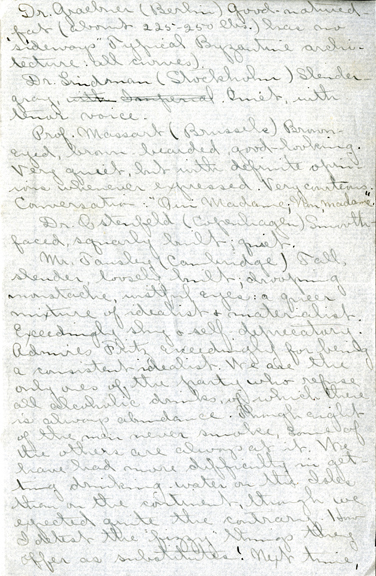 Dr. Graebner (Berlin) good-natured
fat (about 225-250 lbs.) has no
"sideways" Typical Byzantine archi-
tecture. (all curves),
Dr. Lindman (Stockholm) Slender
gray, with Imperial. Quiet, with
tenor voice.
Prof. Massart (Brussels) Brown-
eyed, brown bearded, good-looking.
Very quiet, but with definite opin-
ions whenever expressed. Very
Conversation. "Oui Madame; Non madame"
Dr. Ostenfeld (Copenhagen) Smooth-
faced, squarely built; quiet.
Mr. Tansley (Cambridge) Tall,
slender, loosely built, drooping
moustache, wistful eyes; a queer
mixture of idealist & materialist.
Exceedingly shy & self-deprecatory.
Admires Fritz exceedingly for being
a consistent idealist. We are the
only ones of the party who refuse
all alcoholic drinks, of which there
is always abundance. Though eight
of the men never smoke, some of
the others are always at it. We
have had more difficulty in get-
ting drinking water on the Isles
than on the continent, though we
expected quite the contrary. How
I detest the "fuzzy" things they
offer as substitutes! Next time,